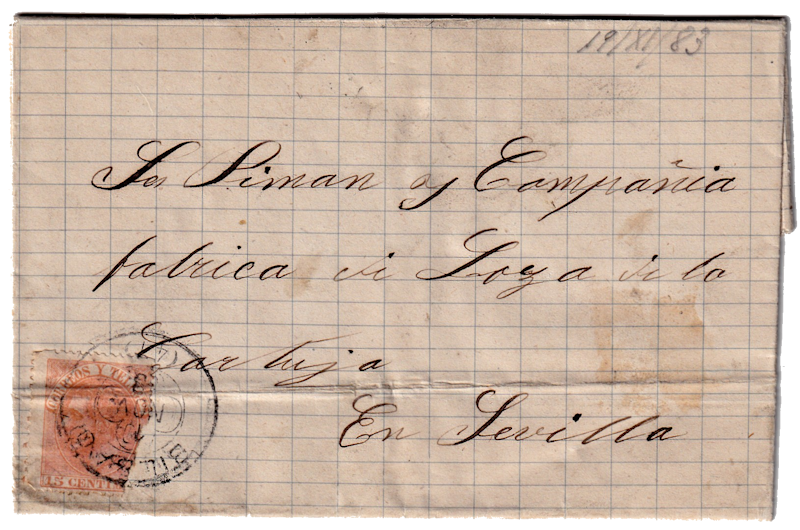 19/XI/83
Srs Piman y Compañia
fabrica de Loza de la
Cartuja
En Sevilla
CORREOS Y
15 CENT
NOV
83
(47)